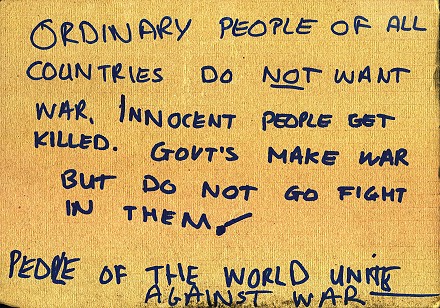 ORDINARY PEOPLE OF ALL
COUNTRIES DO NOT WANT
WAR. INNOCENT PEOPLE GET
KILLED. GOVT'S MAKE WAR
BUT DO NOT GO FIGHT
IN THEM.
PEOPLE OF THE WORLD UNITE
AGAINST WAR